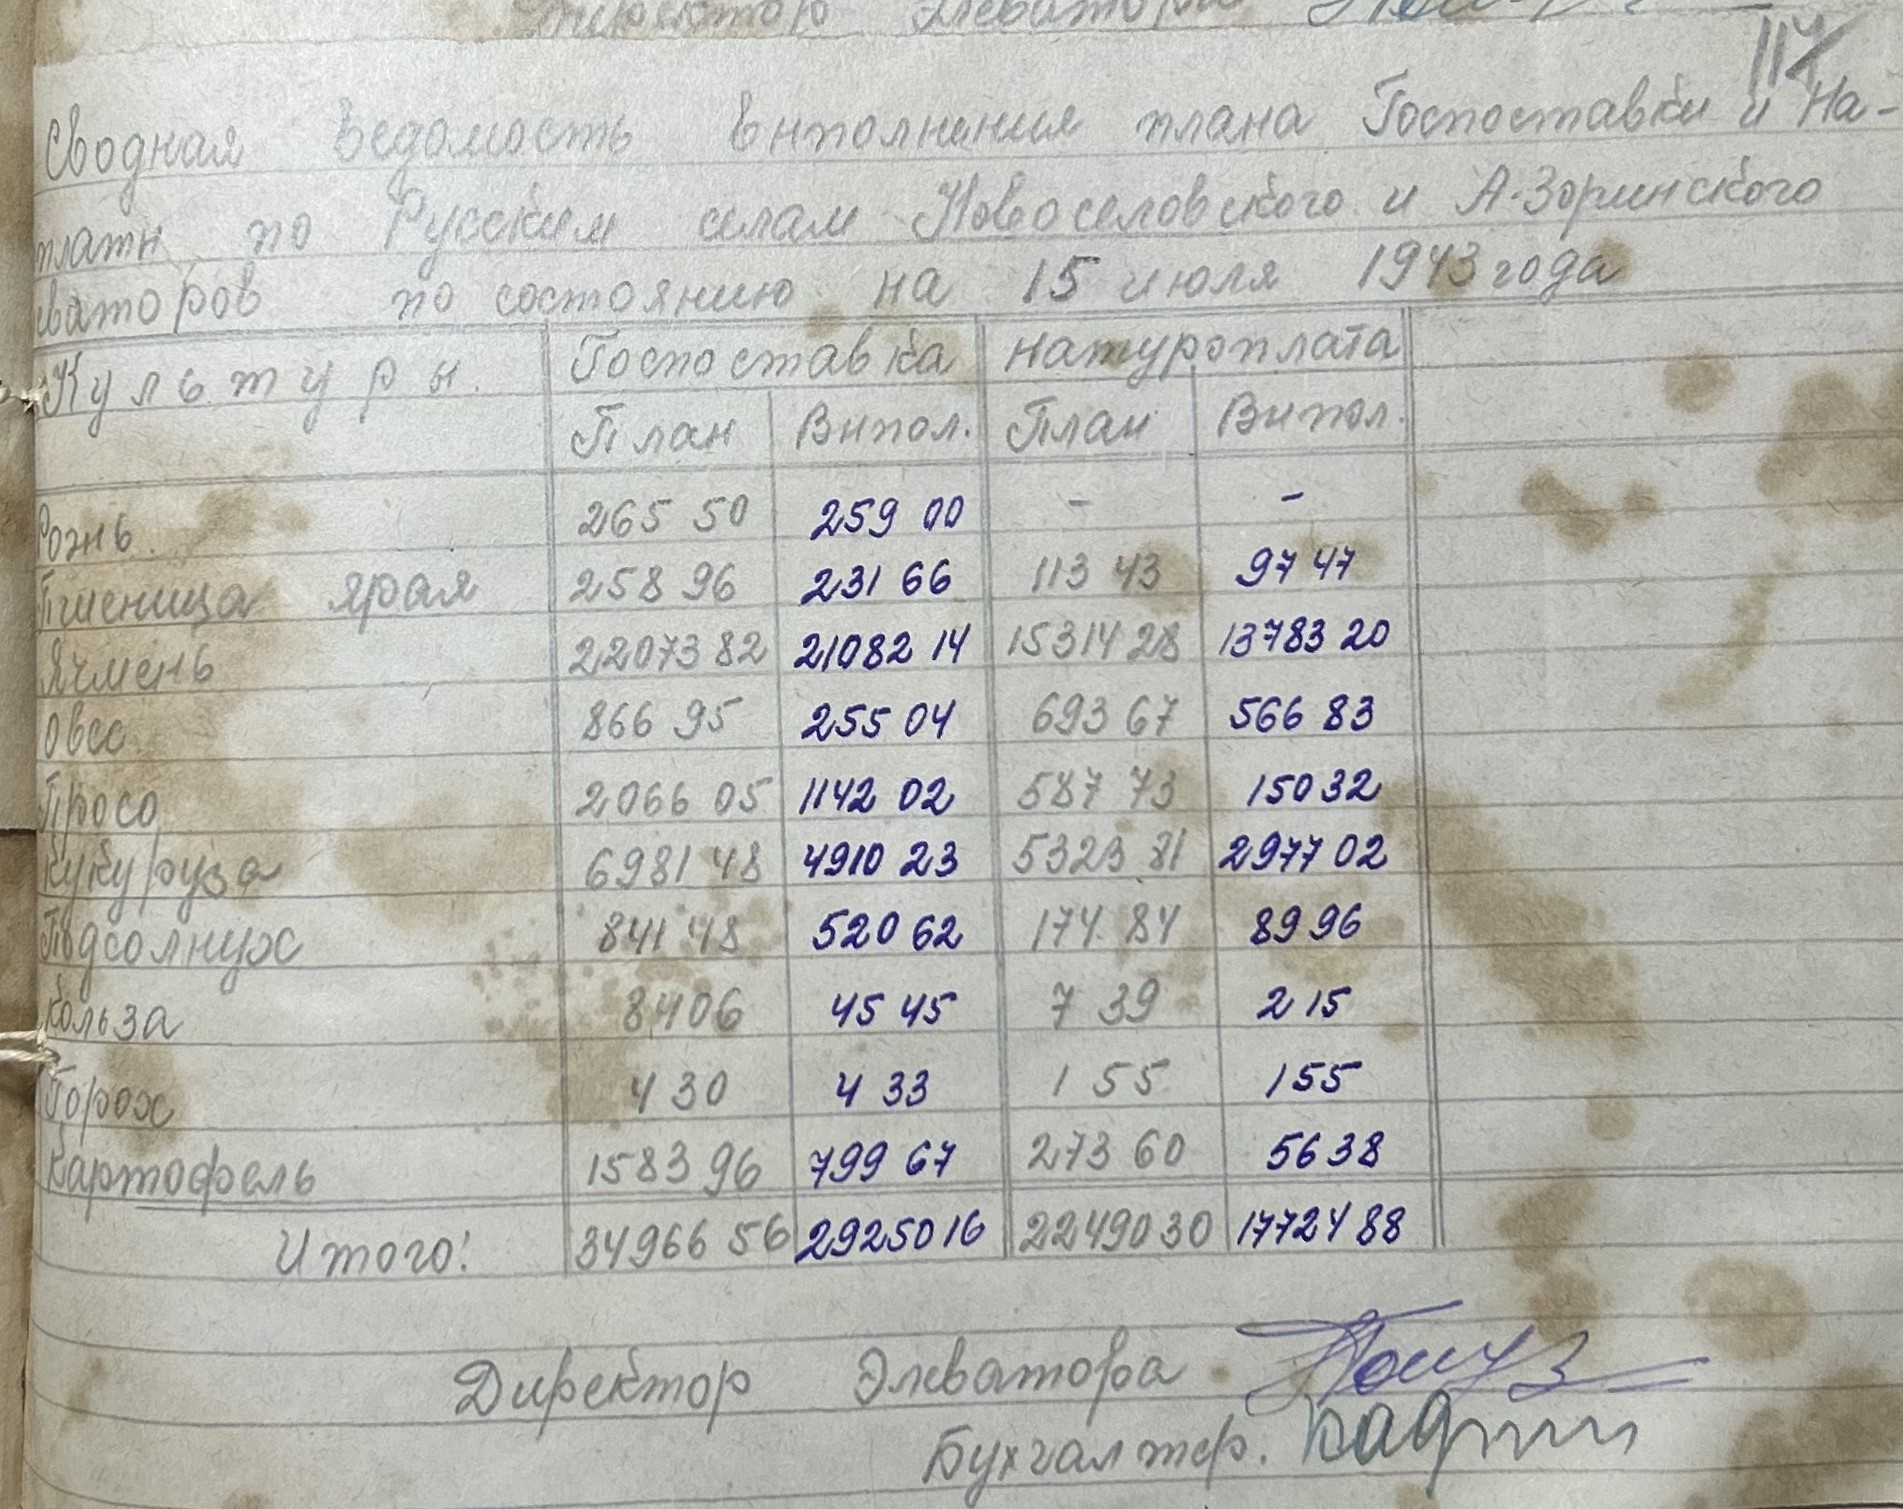 Директор Элеватора
114
Сводная ведомость выполнения плана Госпоставки и На-
платы по Русским селам Новоселовского и А-Зоринского
еваторов по состоянию на 15 июля 1943 года
Культуры. Госпоставка Натуроплата
План Выпол. План Выпол.
Рожь 265 50 259 00 - -
Пшеница ярая 258 96 231 66 113 43 97 47
Ячмень 22073 82 21082 14 15314 28 13783 20
Овес 866 95 255 04 693 67 566 83
Просо 2066 05 1142 02 587 73 150 32
Кукуруза 6981 48 4910 23 5323 81 2977 02
Подсолнух 841 48 520 62 174 84 89 96
Кольза 84 06 45 45 7 39 2 15
Горох 4 30 4 33 1 55 1 55
Картофель 1583 96 799 67 273 60 56 38
Итого: 34966 56 29250 16 22490 30 17724 88
Директор Элеватора
Бухгалтер.